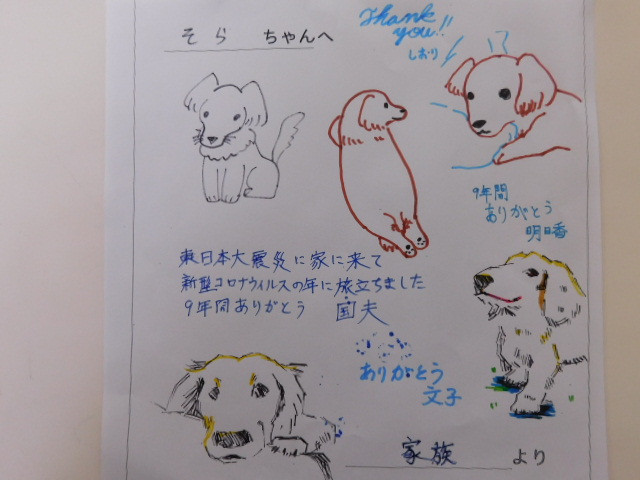 そら ちゃんへ
Thank
you!!
しおり
9年間
ありがとう
明日香
東日本大震災に家に来て
新型コロナウィルスの年に旅立ちました
9年間ありがとう 国夫
ありがとう
文子
家族 より